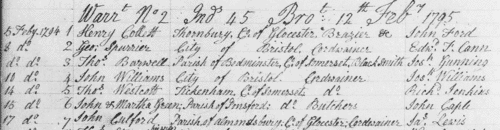 Warrt No 2 Ind 45 Brot 12th Feby 1795
5 Feby 1794 1 Henry Collett Thornbury, C. of Glocester Brazier & John Ford
8 do 2 Geo: Spurrier City of Bristol Cordwainer Edwd T. Cann
do do 3 Thos Barwell Parish of Bedminster, C. of Somerset, Black Smith Jos: Gunning
10 do 4 John Williams City of Bristol Cordwainer Jos: Williams
14 do 5 Thos Westcott Tickenham, C. of Somerset do Richd Jenkins
15 do 6 John & Martha Green, Parish of do Butchers John Caple
17 do 7 John Parish of Almondsbury, C. of Glocester, Cordwainer Jas Lewis